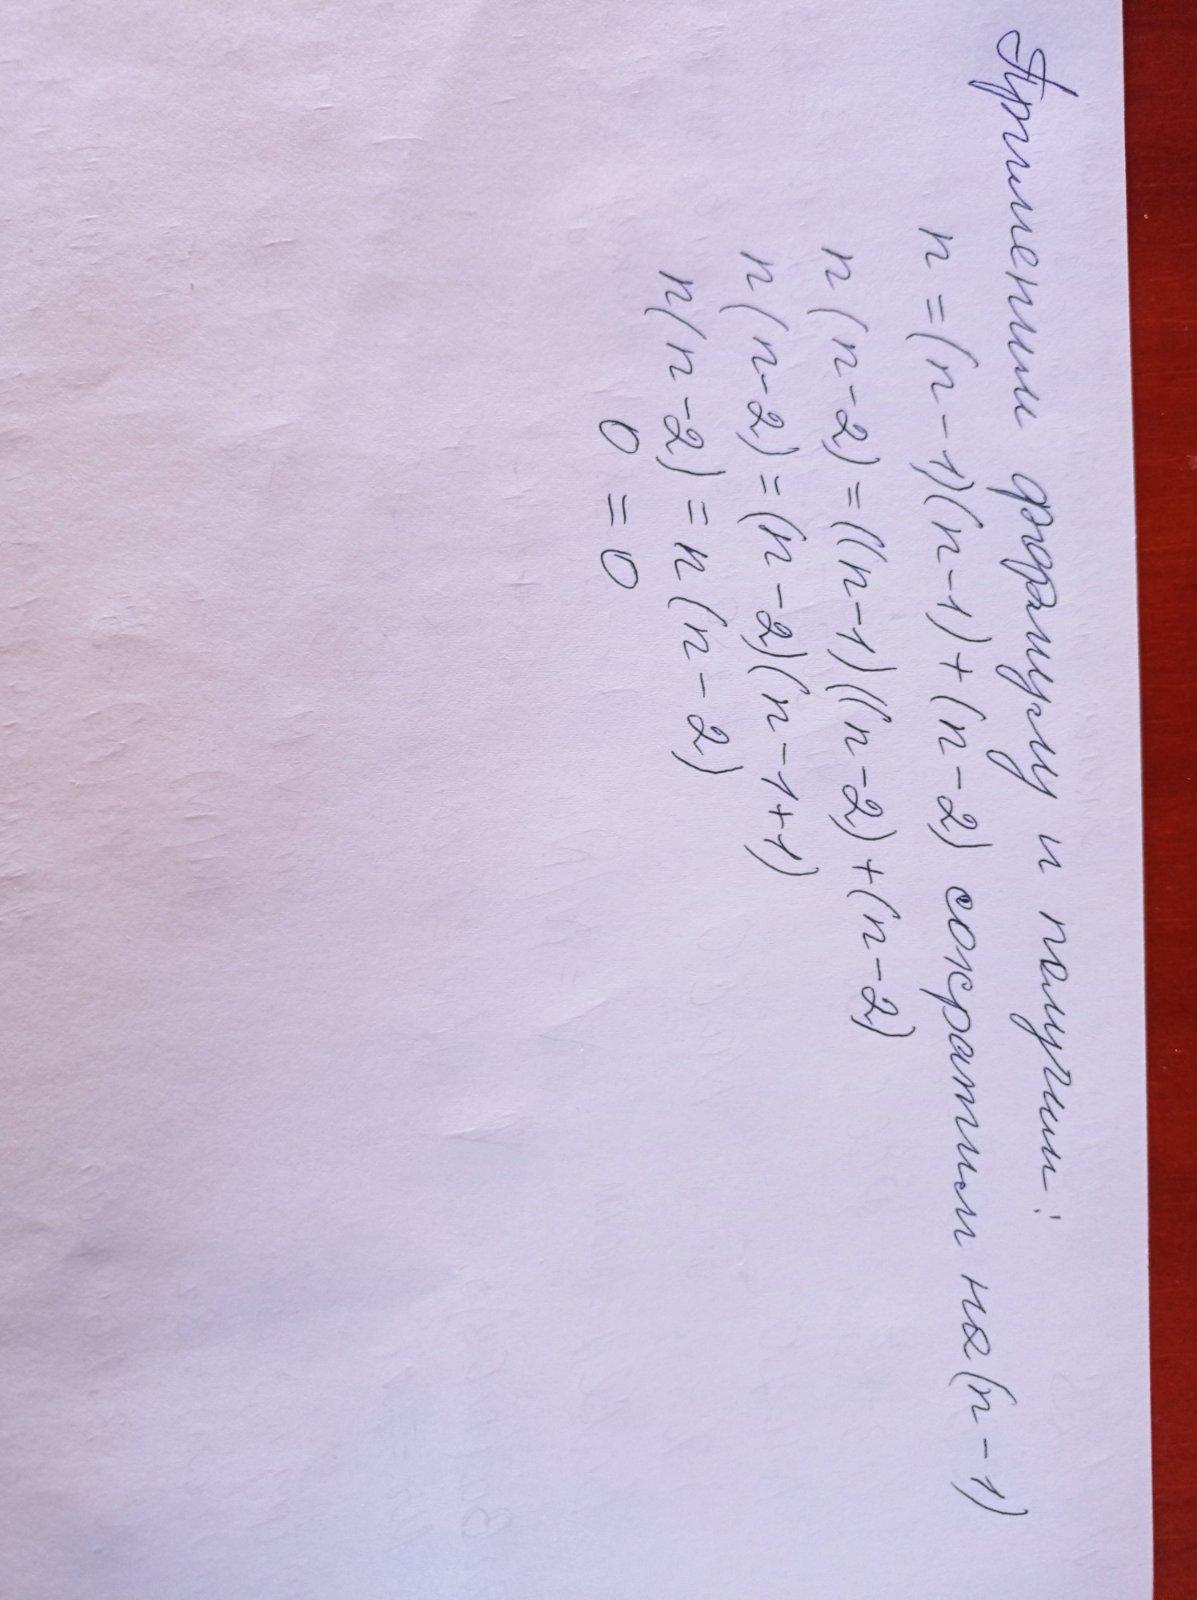 Применим формулу и получим:
n=(n-1)(n-1)+(n-2) сократим на (n-1)
n(n-2)=((n-1)((n-2)+(n-2)
n(n-2)=(n-2)(n-1+1)
n(n-2)=n(n-2)
0=0